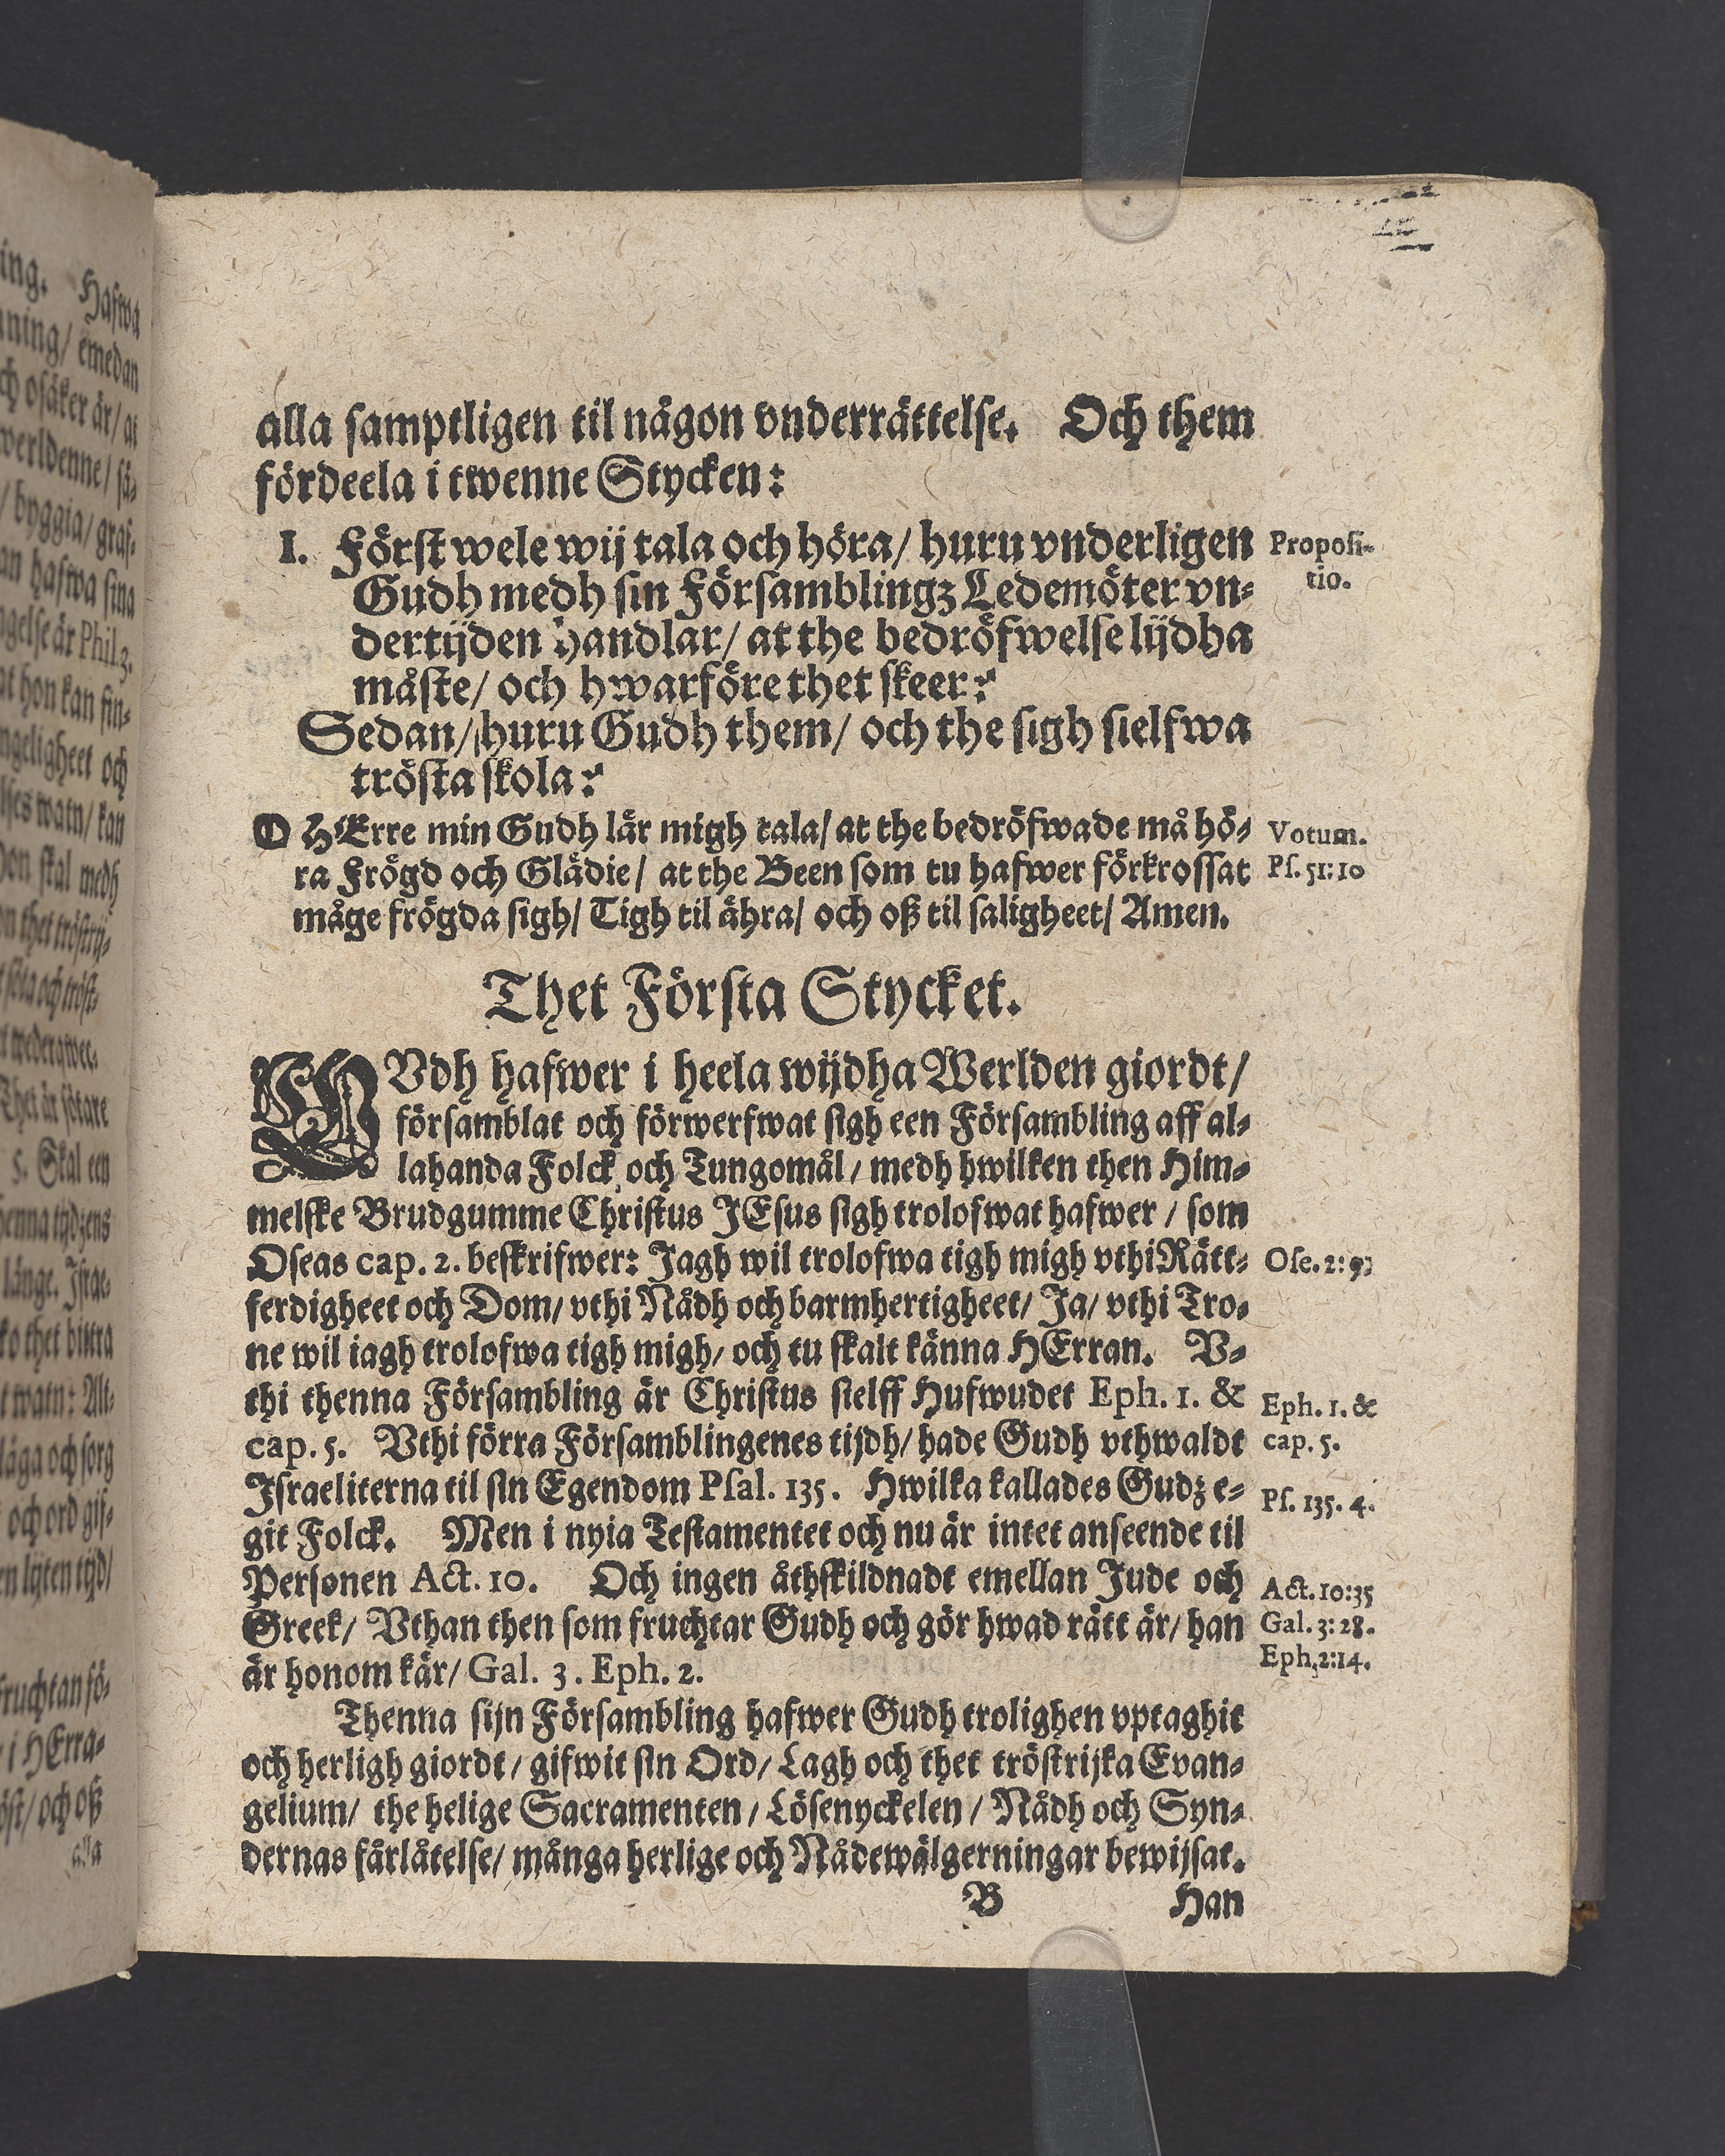 alla samptligen til någon vnderrättelse. Och them
fördeela i twenne Stycken:
I. Först wele wij tala och höra/ huru vnderligen
Propositio.
Gudh medh sin Församblingz Ledemöter vn-
dertijden handlar/ at the bedröfwelse lijdha
måste/ och hwarföre thet skeer:
Sedan/ huru Gudh them/ och the sigh sielfwa
trösta skola:
O HErre min Gudh lär migh tala/ at the bedröfwade må hö-
Votum.
ra Frögd och Glädie/ at the Been som tu hafwer förkrossat
Ps. 51:10
måge frögda sigh/ Tigh til ähra/ och oß til saligheet/ Amen.
Thet Första Stycket.
GVdh hafwer i heela wijdha Werlden giordt/
församblat och förwerfwat sigh een Försambling aff al-
lahanda Folck och Tungomål/ medh hwilken then Him-
melske Brudgumme Christus JEsus sigh trolofwat hafwer/ som
Oseas cap. 2. beskrifwer: Jagh wil trolofwa tigh migh vthi Rätt-
Ose. 2:
ferdigheet och Dom/ vthi Nådh och barmhertigheet/ Ja/ vthi Tro-
ne wil iagh trolofwa tigh migh/ och tu skalt känna HErran. V-
thi thenna Försambling är Christus sielff Hufwudet Eph. 1. &
Eph. 1. &
cap. 5. Vthi förra Församblingenes tijdh/ hade Gudh vthwaldt
cap. 5.
Israeliterna til sin Egendom Psal. 135. Hwilka kallades Gudz e-
Ps. 135. 4.
git Folck. Men i nyia Testamentet och nu är intet anseende til
Personen Act. 10. Och ingen åthskildnadt emellan Jude och
Act. 10:35
Greek/ Vthan then som fruchtar Gudh och gör hwad rätt är/ han
Gal. 3:28.
är honom kär/ Gal. 3. Eph. 2.
Eph. 2:14.
Thenna sijn Försambling hafwer Gudh trolighen vptaghit
och herligh giordt/ gifwit sin Ord/ Lagh och thet tröstrijka Evan-
gelium/ the helige Sacramenten/ Lösenyckelen/ Nådh och Syn-
dernas färlåtelse/ många herlige och Nådewälgerningar bewijsat.
B Han